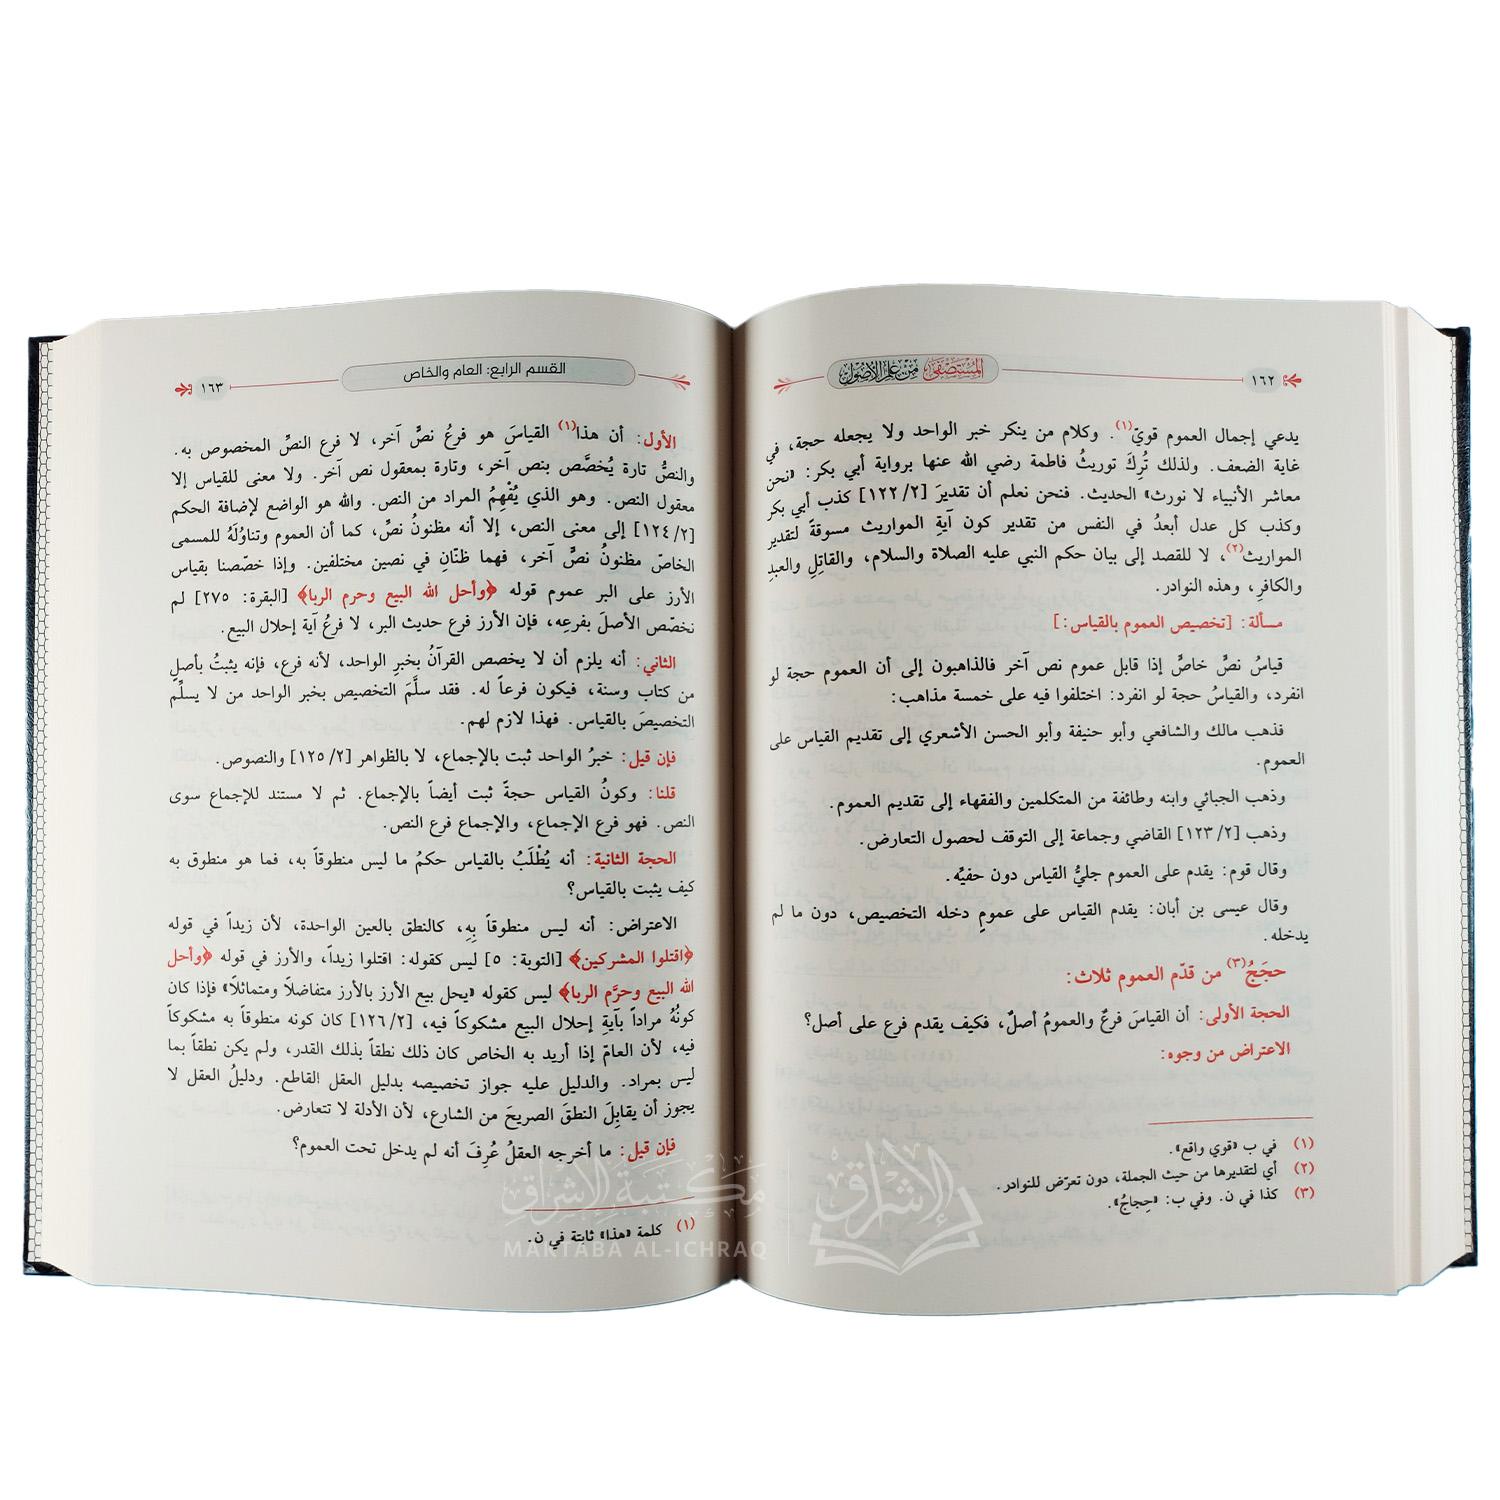 ١٦٢
المستصفى من علم الأصول
يدعي إجمال العموم قويّ(١). وكلام من ينكر خبر الواحد ولا يجعله حجة، في
غاية الضعف. ولذلك تُرِكَ توريثُ فاطمة رضي الله عنها برواية أبي بكر: «نحن
معاشر الأنبياء لا نورث» الحديث. فنحن نعلم أن تقديرَ [١٢٢/٢] كذب أبي بكر
وكذب كل عدل أبعدُ في النفس من تقدير كون آيةِ المواريث مسوقةً لتقدير
المواريث(٢)، لا للقصد إلى بيان حكم النبي عليه الصلاة والسلام، والقاتِلِ والعبدِ
والكافرِ، وهذه النوادر.
مسألة: [تخصيص العموم بالقياس:]
قياسُ نصٍّ خاصٍّ إذا قابل عموم نص آخر فالذاهبون إلى أن العموم حجة لو
انفرد، والقياسُ حجة لو انفرد: اختلفوا فيه على خمسة مذاهب:
فذهب مالك والشافعي وأبو حنيفة وأبو الحسن الأشعري إلى تقديم القياس على
العموم.
وذهب الجبائي وابنه وطائفة من المتكلمين والفقهاء إلى تقديم العموم.
وذهب [١٢٣/٢] القاضي وجماعة إلى التوقف لحصول التعارض.
وقال قوم: يقدم على العموم جليُّ القياس دون خفيِّه.
وقال عيسى بن أبان: يقدم القياس على عمومٍ دخله التخصيص، دون ما لم
يدخله.
حجَجُ(٣) من قدّم العموم ثلاث:
الحجة الأولى: أن القياسَ فرعٌ والعمومُ أصلٌ، فكيف يقدم فرع على أصل؟
الاعتراض من وجوه:
(١) في ب «قوي واقع».
(٢) أي لتقديرها من حيث الجملة، دون تعرّض للنوادر.
(٣) كذا في ن. وفي ب: «حِجاجُ».
القسم الرابع: العام والخاص
١٦٣
الأول: أن هذا(١) القياسَ هو فرعُ نصٍّ آخر، لا فرع النصِّ المخصوص به.
والنصُّ تارة يُخصَّص بنص آخر، وتارة بمعقول نص آخر. ولا معنى للقياس إلا
معقول النص. وهو الذي يُفْهِمُ المراد من النص. والله هو الواضع لإضافة الحكم
[١٢٤/٢] إلى معنى النص، إلا أنه مظنونُ نصٍّ، كما أن العموم وتناوُلَهُ للمسمى
الخاصّ مظنونُ نصٍّ آخر، فهما ظنّانِ في نصين مختلفين. وإذا خصّصنا بقياس
الأرز على البر عموم قوله ﴿وأحل الله البيع وحرم الربا﴾ [البقرة: ٢٧٥] لم
نخصّص الأصلَ بفرعِه، فإن الأرز فرع حديث البر، لا فرعُ آية إحلال البيع.
الثاني: أنه يلزم أن لا يخصص القرآنُ بخبرِ الواحد، لأنه فرع، فإنه يثبتُ بأصلٍ
من كتاب وسنة، فيكون فرعاً له. فقد سلَّمَ التخصيص بخبر الواحد من لا يسلِّمُ
التخصيصَ بالقياس. فهذا لازم لهم.
فإن قيل: خبرُ الواحد ثبت بالإجماع، لا بالظواهر [١٢٥/٢] والنصوص.
قلنا: وكونُ القياس حجةً ثبت أيضاً بالإجماع. ثم لا مستند للإجماع سوى
النص. فهو فرع الإجماع، والإجماع فرع النص.
الحجة الثانية: أنه يُطْلَبُ بالقياس حكمُ ما ليس منطوقاً به، فما هو منطوق به
كيف يثبت بالقياس؟
الاعتراض: أنه ليس منطوقاً بِهِ، كالنطق بالعين الواحدة، لأن زيداً في قوله
﴿اقتلوا المشركين﴾ [التوبة: ٥] ليس كقوله: اقتلوا زيداً، والأرز في قوله ﴿وأحل
الله البيع وحرَّم الربا﴾ ليس كقوله «يحل بيع الأرز بالأرز متفاضلاً ومتماثلاً» فإذا كان
كونُهُ مراداً بآيةِ إحلال البيع مشكوكاً فيه، [١٢٦/٢] كان كونه منطوقاً به مشكوكاً
فيه، لأن العامّ إذا أريد به الخاص كان ذلك نطقاً بذلك القدر، ولم يكن نطقاً بما
ليس بمراد. والدليل عليه جواز تخصيصه بدليل العقل القاطع. ودليلُ العقل لا
يجوز أن يقابِلَ النطقَ الصريحَ من الشارع، لأن الأدلة لا تتعارض.
فإن قيل: ما أخرجه العقلُ عُرِفَ أنه لم يدخل تحت العموم؟
(١) كلمة «هذا» ثابتة في ن.
مكتبة الإشراق
MAKTABA AL-ICHRAQ
الإشراق